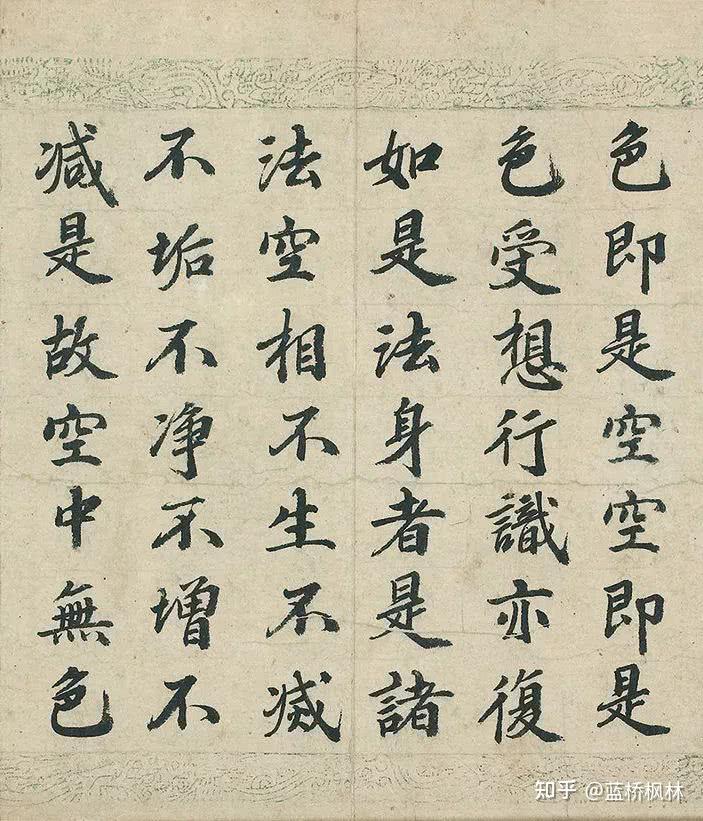 色即是空空即是
色受想行識亦復
如是法身者是諸
法空相不生不滅
不垢不净不增不
减是故空中無色
知乎 @蓝桥枫林